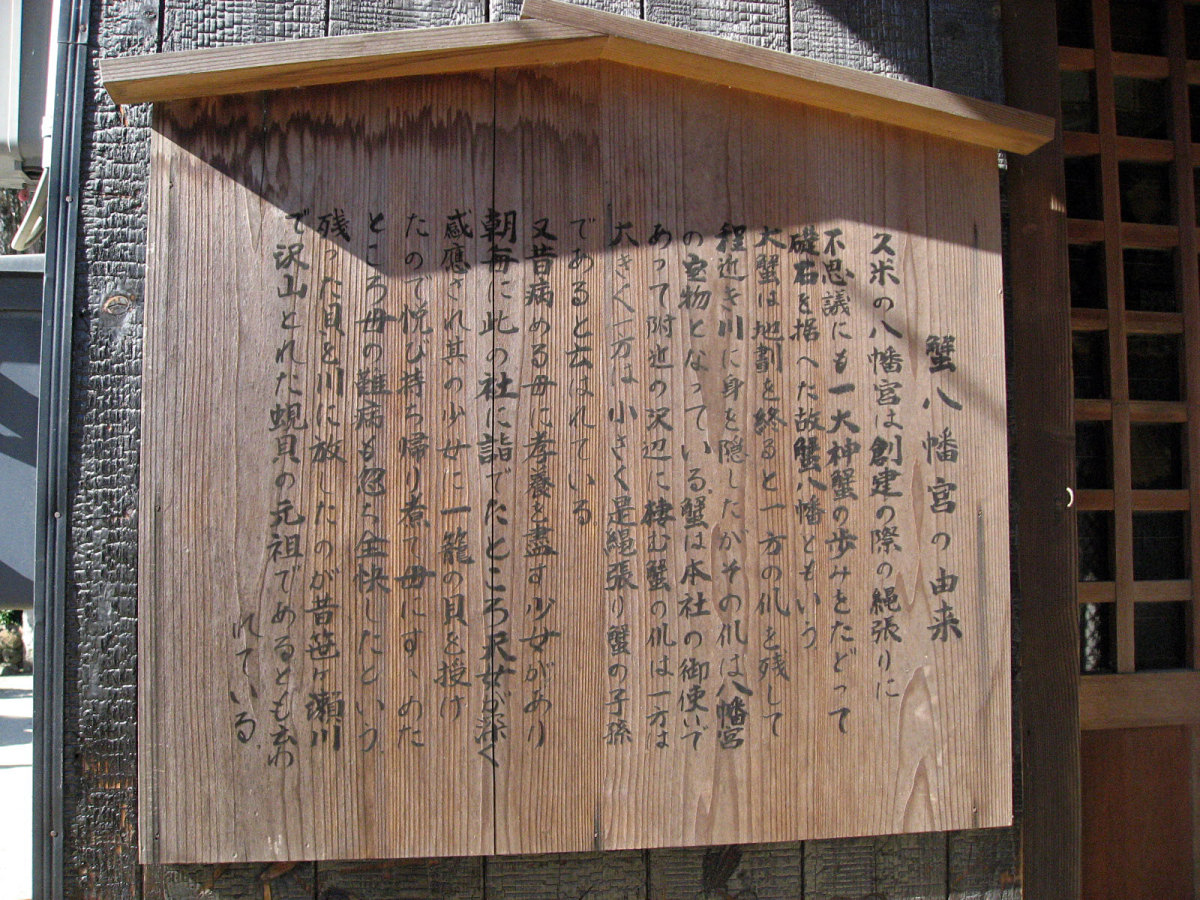 蟹八幡宮の由来
久米の八幡宮は創建の際の縄張りに
不思議にも一大神蟹の歩みをたどって
礎石を据へた故蟹八幡ともいう
大蟹は地割を終ると一方の爪を残して
程近き川に身を隠したがその爪は八幡宮
の宝物となっている蟹は本社の御使いで
あって附近の沢辺に棲む蟹の爪は一方は
大きく一方は小さく是縄張り蟹の子孫
であると云はれている
又昔病める母に孝養を盡す少女があり
朝毎に此の社に詣でたところ天女が深く
感應され其の少女に一籠の貝を授け
たので悦び持ち帰り煮て母にすゝめた
ところ母の難病も忽ち全快したという
残った貝を川に放したのが昔笹ヶ瀬川
で沢山とれた蜆貝の元祖であるとも云わ
れている